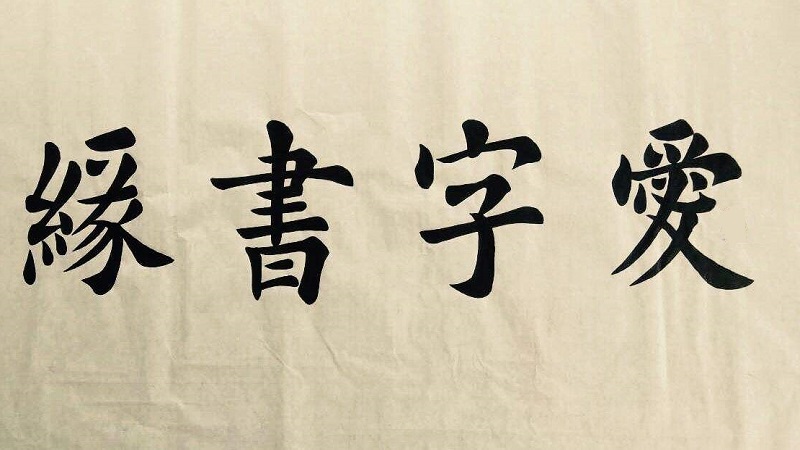 愛字書緣